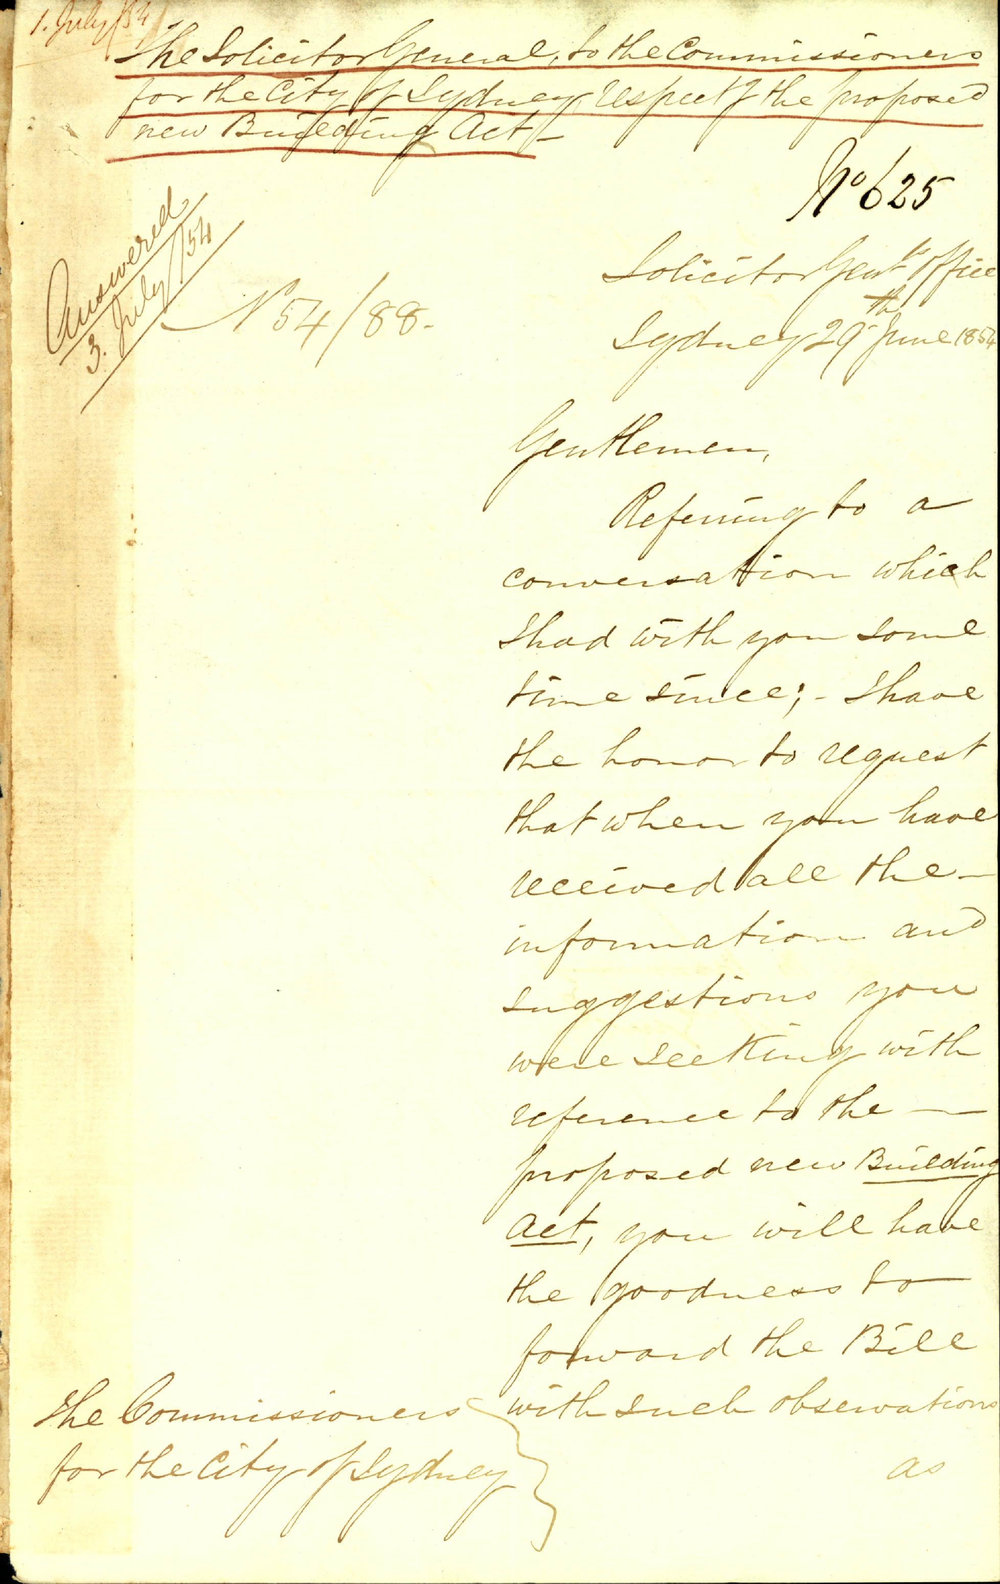 1. July/54
The Solicitor General, to the Commissioners
for the City of Sydney, respect.g the proposed
new Building Act/-
No 625
Answered
3. July/54
No 54/88-
Solicitor Genl's Office
Sydney 29th June 1854
Gentlemen,
Referring to a
conversation which
I had with you some
time since; - I have
the honor to request
that when you have
received all the -
information and
suggestions you
were seeking with
reference to the -
proposed new Building
Act, you will have
the goodness to
forward the Bill
with such observations
as
The Commissioners
for the City of Sydney